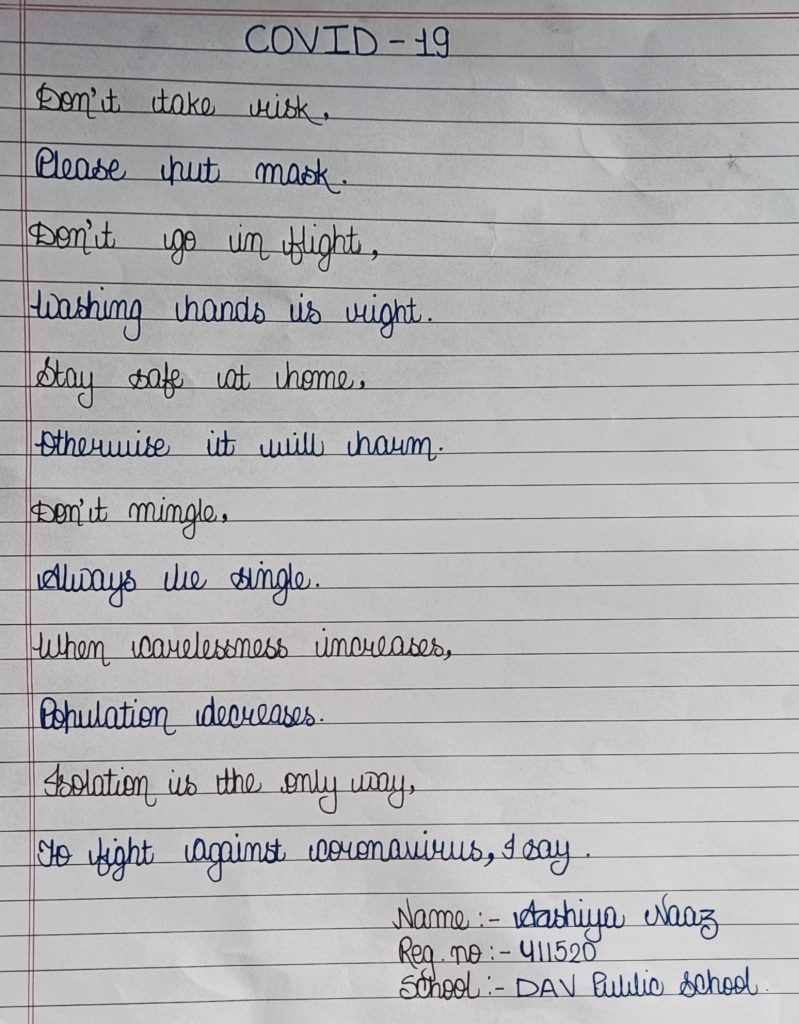 COVID-19
Don't take risk,
Please put mask.
Don't go in flight,
Washing hands is right.
Stay safe at home,
Otherwise it will harm.
Don't mingle,
Always be single.
When carelessness increases,
Population decreases.
Isolation is the only way,
To fight against coronavirus, I say.
Name:- Aashiya Naaz
Reg. no:- 411520
School:- DAV Public School.